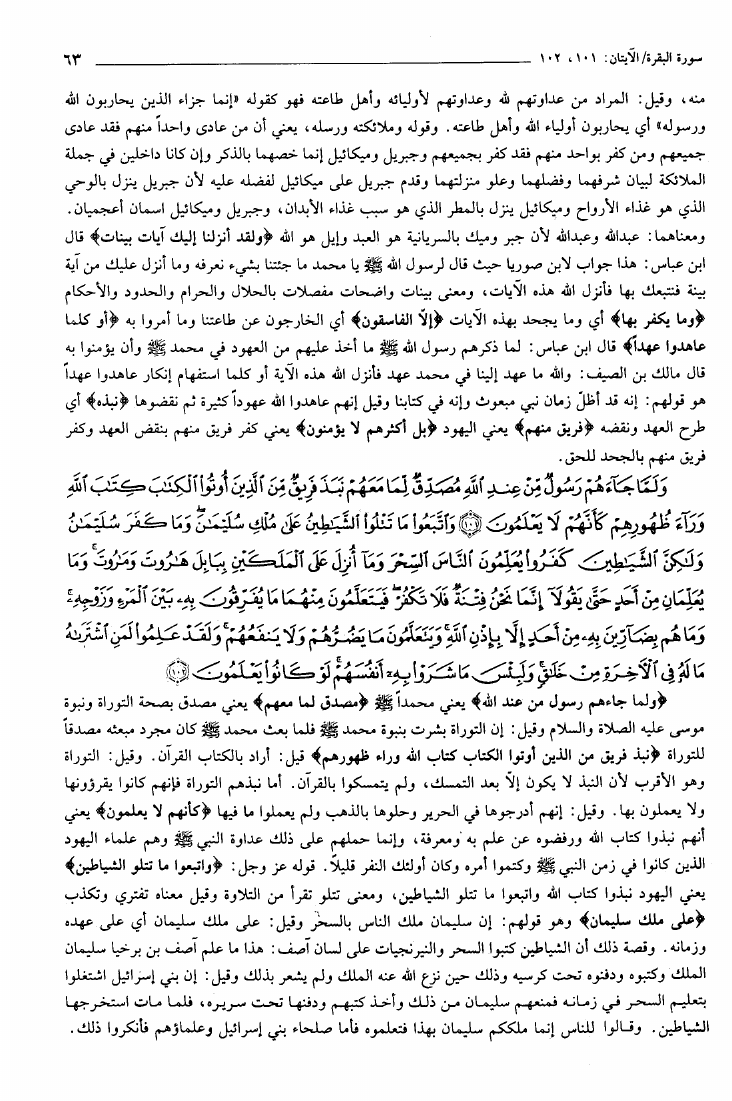 سورة البقرة/ الآيتان: ١٠١، ١٠٢ ٦٣
منه، وقيل: المراد من عداوتهم لله وعداوتهم لأوليائه وأهل طاعته فهو كقوله «إنما جزاء الذين يحاربون الله
ورسوله» أي يحاربون أولياء الله وأهل طاعته. وقوله وملائكته ورسله، يعني أن من عادى واحداً منهم فقد عادى
جميعهم ومن كفر بواحد منهم فقد كفر بجميعهم وجبريل وميكائيل إنما خصهما بالذكر وإن كانا داخلين في جملة
الملائكة لبيان شرفهما وفضلهما وعلو منزلتهما وقدم جبريل على ميكائيل لفضله عليه لأن جبريل ينزل بالوحي
الذي هو غذاء الأرواح وميكائيل ينزل بالمطر الذي هو سبب غذاء الأبدان، وجبريل وميكائيل اسمان أعجميان.
ومعناهما: عبدالله وعبدالله لأن جبر وميك بالسريانية هو العبد وإيل هو الله ﴿ولقد أنزلنا إليك آيات بينات﴾ قال
ابن عباس: هذا جواب لابن صوريا حيث قال لرسول الله ﷺ يا محمد ما جئتنا بشيء نعرفه وما أنزل عليك من آية
بينة فنتبعك بها فأنزل الله هذه الآيات، ومعنى بينات واضحات مفصلات بالحلال والحرام والحدود والأحكام
﴿وما يكفر بها﴾ أي وما يجحد بهذه الآيات ﴿إلّا الفاسقون﴾ أي الخارجون عن طاعتنا وما أمروا به ﴿أو كلما
عاهدوا عهداً﴾ قال ابن عباس: لما ذكرهم رسول الله ﷺ ما أخذ عليهم من العهود في محمد ﷺ وأن يؤمنوا به
قال مالك بن الصيف: والله ما عهد إلينا في محمد عهد فأنزل الله هذه الآية أو كلما استفهام إنكار عاهدوا عهداً
هو قولهم: إنه قد أظلّ زمان نبي مبعوث وإنه في كتابنا وقيل إنهم عاهدوا الله عهوداً كثيرة ثم نقضوها ﴿نبذه﴾ أي
طرح العهد ونقضه ﴿فريق منهم﴾ يعني اليهود ﴿بل أكثرهم لا يؤمنون﴾ يعني كفر فريق منهم بنقض العهد وكفر
فريق منهم بالجحد للحق.
وَلَمَّا جَآءَهُمْ رَسُولٌ مِّنْ عِندِ ٱللَّهِ مُصَدِّقٌ لِّمَا مَعَهُمْ نَبَذَ فَرِيقٌ مِّنَ ٱلَّذِينَ أُوتُوا۟ ٱلْكِتَٰبَ كِتَٰبَ ٱللَّهِ
وَرَآءَ ظُهُورِهِمْ كَأَنَّهُمْ لَا يَعْلَمُونَ ﴿١٠١﴾ وَٱتَّبَعُوا۟ مَا تَتْلُوا۟ ٱلشَّيَٰطِينُ عَلَىٰ مُلْكِ سُلَيْمَٰنَ ۖ وَمَا كَفَرَ سُلَيْمَٰنُ
وَلَٰكِنَّ ٱلشَّيَٰطِينَ كَفَرُوا۟ يُعَلِّمُونَ ٱلنَّاسَ ٱلسِّحْرَ وَمَآ أُنزِلَ عَلَى ٱلْمَلَكَيْنِ بِبَابِلَ هَٰرُوتَ وَمَٰرُوتَ ۚ وَمَا
يُعَلِّمَانِ مِنْ أَحَدٍ حَتَّىٰ يَقُولَآ إِنَّمَا نَحْنُ فِتْنَةٌ فَلَا تَكْفُرْ ۖ فَيَتَعَلَّمُونَ مِنْهُمَا مَا يُفَرِّقُونَ بِهِۦ بَيْنَ ٱلْمَرْءِ وَزَوْجِهِۦ ۚ
وَمَا هُم بِضَآرِّينَ بِهِۦ مِنْ أَحَدٍ إِلَّا بِإِذْنِ ٱللَّهِ ۚ وَيَتَعَلَّمُونَ مَا يَضُرُّهُمْ وَلَا يَنفَعُهُمْ ۚ وَلَقَدْ عَلِمُوا۟ لَمَنِ ٱشْتَرَىٰهُ
مَا لَهُۥ فِى ٱلْـَٔاخِرَةِ مِنْ خَلَٰقٍ ۚ وَلَبِئْسَ مَا شَرَوْا۟ بِهِۦٓ أَنفُسَهُمْ ۚ لَوْ كَانُوا۟ يَعْلَمُونَ ﴿١٠٢﴾
﴿ولما جاءهم رسول من عند الله﴾ يعني محمداً ﷺ ﴿مصدق لما معهم﴾ يعني مصدق بصحة التوراة ونبوة
موسى عليه الصلاة والسلام وقيل: إن التوراة بشرت بنبوة محمد ﷺ فلما بعث محمد ﷺ كان مجرد مبعثه مصدقاً
للتوراة ﴿نبذ فريق من الذين أوتوا الكتاب كتاب الله وراء ظهورهم﴾ قيل: أراد بالكتاب القرآن. وقيل: التوراة
وهو الأقرب لأن النبذ لا يكون إلّا بعد التمسك، ولم يتمسكوا بالقرآن. أما نبذهم التوراة فإنهم كانوا يقرؤونها
ولا يعملون بها. وقيل: إنهم أدرجوها في الحرير وحلوها بالذهب ولم يعملوا ما فيها ﴿كأنهم لا يعلمون﴾ يعني
أنهم نبذوا كتاب الله ورفضوه عن علم به ومعرفة، وإنما حملهم على ذلك عداوة النبي ﷺ وهم علماء اليهود
الذين كانوا في زمن النبي ﷺ وكتموا أمره وكان أولئك النفر قليلاً. قوله عز وجل: ﴿واتبعوا ما تتلو الشياطين﴾
يعني اليهود نبذوا كتاب الله واتبعوا ما تتلو الشياطين، ومعنى تتلو تقرأ من التلاوة وقيل معناه تفتري وتكذب
﴿على ملك سليمان﴾ وهو قولهم: إن سليمان ملك الناس بالسحر وقيل: على ملك سليمان أي على عهده
وزمانه. وقصة ذلك أن الشياطين كتبوا السحر والنيرنجيات على لسان آصف: هذا ما علم آصف بن برخيا سليمان
الملك وكتبوه ودفنوه تحت كرسيه وذلك حين نزع الله عنه الملك ولم يشعر بذلك وقيل: إن بني إسرائيل اشتغلوا
بتعليم السحر في زمانه فمنعهم سليمان من ذلك وأخذ كتبهم ودفنها تحت سريره، فلما مات استخرجها
الشياطين. وقالوا للناس إنما ملككم سليمان بهذا فتعلموه فأما صلحاء بني إسرائيل وعلماؤهم فأنكروا ذلك.